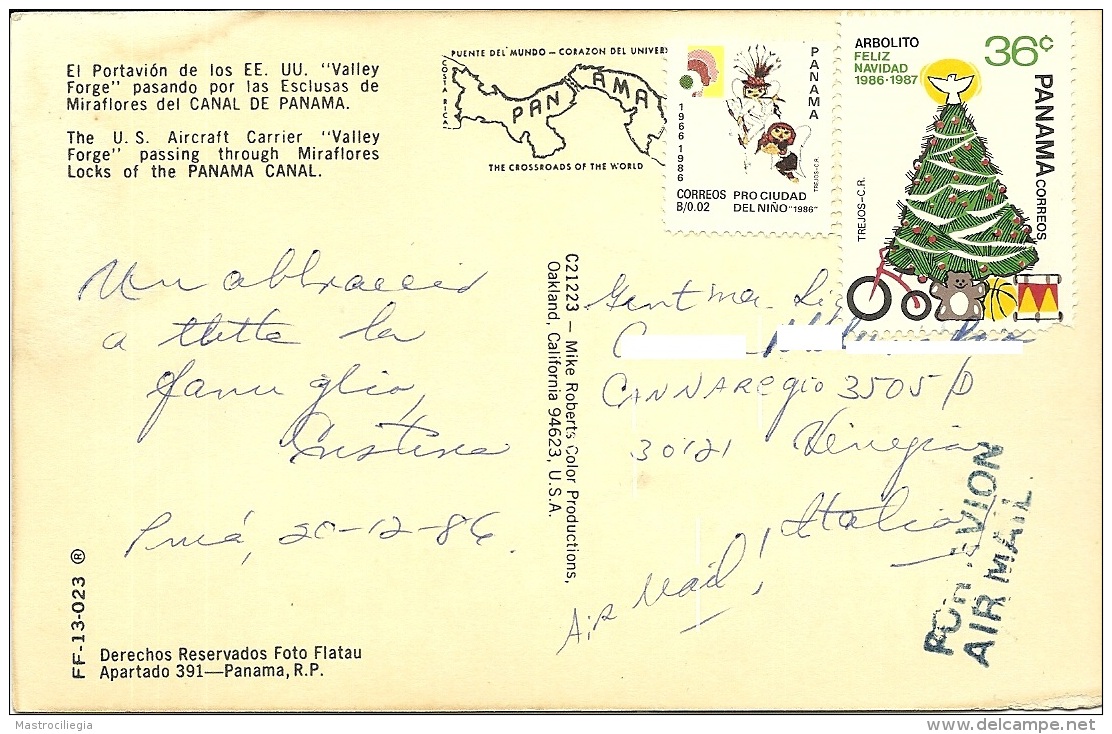 El Portavión de los EE. UU. "Valley
Forge" pasando por las Esclusas de
Miraflores del CANAL DE PANAMA.
The U.S. Aircraft Carrier "Valley
Forge" passing through Miraflores
Locks of the PANAMA CANAL.
PUENTE DEL MUNDO – CORAZON DEL UNIVER
COSTA RICA
PANAMA
THE CROSSROADS OF THE WORLD
PANAMA
1966 1986
TREJOS-C.R.
CORREOS
B/0.02
PRO CIUDAD
DEL NIÑO "1986"
ARBOLITO
FELIZ
NAVIDAD
1986-1987
36¢
PANAMA CORREOS
TREJOS-C.R.
Un abbraccio
a tutta la
famiglia,
Cristina
Pmá, 20-12-86.
C21223 — Mike Roberts Color Productions,
Oakland, California 94623, U.S.A.
Gent.ma
CANNAREGIO 3505/D
30121 Venezia
Italia
Air Mail!
POR AVION
AIR MAIL
FF-13-023 ®
Derechos Reservados Foto Flatau
Apartado 391—Panama, R.P.
Mastrociliegia
delcampe.net